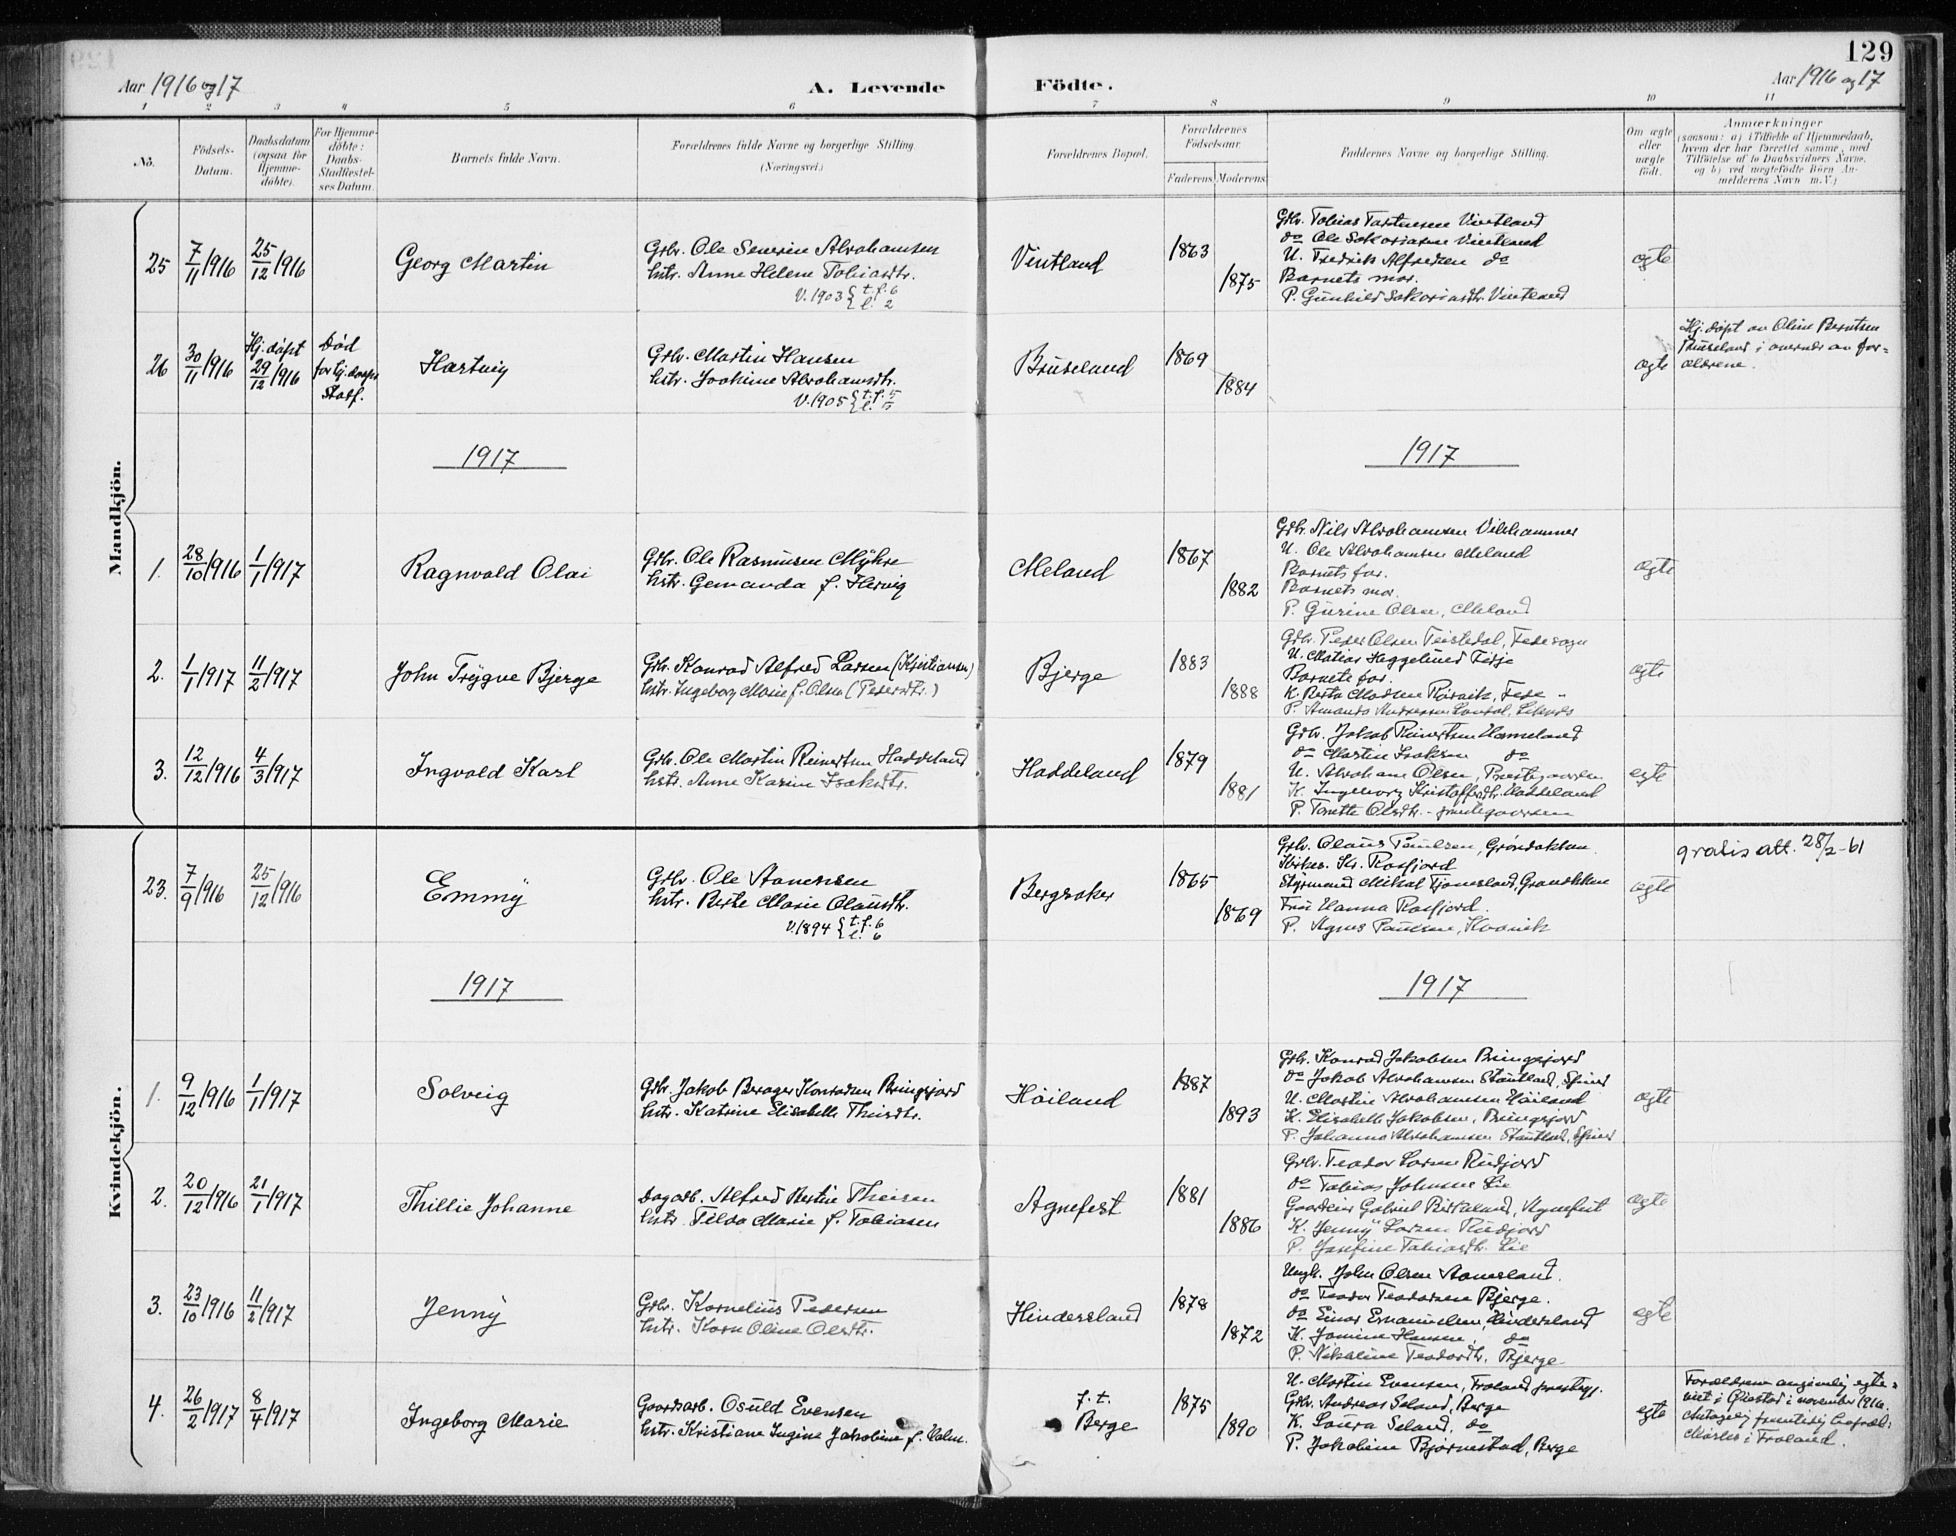 129
Aar 1916 og 17
A. Levende Födte.
Aar 1916 og 17
1 2 3 4 5 6 7 8 9 10 11
No.
Födsels-
Datum.
Daabsdatum
(ogsaa for
Hjemme-
döbte).
For Hjemme-
döbte:
Daabs-
Stadfæstel-
ses Datum.
Barnets fulde Navn.
Forældrenes fulde Navne og borgerlige Stilling.
(Næringsvei.)
Forældrenes Bopæl.
Forældrenes
Födselsaar.
Faderens. Moderens.
Faddernes Navne og borgerlige Stilling.
Om ægte
eller
uægte
födt.
Anmærkninger
(saasom: a) i Tilfælde af Hjemmedaab,
hvem der har forrettet samme, med
Tilföielse af to Daabsvidners Navne.
og b) ved uægtefödte Börn An-
melderens Navn m.V.)
Mandkjön.
25 7/11 1916 25/12 1916
Georg Martin
Gdbr. Ole Severin Abrahamsen
hstr. Anne Helene Tobiasdtr.
V. 1903 { t. f. 6
l. 2
Vintland
1863
1875
Gdbr. Tobias Vintland
do Ole Sakariasen Vintland
U. Fredrik Alfredsen do
Barnets mor.
P. Gunhild Sakariasdtr. Vintland
ægte
26 30/11 1916 Hj. døpt 29/12 1916
Død
for hj. daapens
Stadf.
Hartvig
Gdbr. Martin Hansen
hstr. Joakime Abrahamsdtr.
V. 1905 { t. f. 5
l. 5
Bruseland
1869
1884
ægte
Hj. døpt av Oline Berntsen
Bruseland i nærvær av for-
ældrene.
1917
1917
1. 28/10 1916 1/1 1917
Ragnvald Olai
Gdbr. Ole Rasmusen Myhre
hstr. Gemanda f. Hervig
Meland
1867
1882
Gdbr. Nils Abrahamsen
U. Ole Abrahamsen Meland
Barnets far.
Barnets mor.
P. Gurine Olsen, Meland
ægte
2. 1/1 1917 11/2 1917
John Trygve Bjerge
Gdbr. Konrad Alfred Larsen (Kristiansen)
hstr. Ingeborg Marie f. Olsen (Pedersdtr.)
Bjerge
1883
1888
Gdbr. Peder Olsen Feistedal, Fedesogn
U. Matias Heggelund
Barnets far.
K. Berta Madsen Rørvik, Fede
P. Amanda Andersen
ægte
3. 12/12 1916 4/3 1917
Ingvald Karl
Gdbr. Ole Martin Reinertsen Haddeland
hstr. Anne Karine Isaksdtr.
Haddeland
1879
1881
Gdbr. Jakob Reinertsen Hameland
do Martin Isaksen do
U. Abraham Olsen, Prestegaarden
K. Ingeborg Kristoffersdtr. Haddeland
P. Tonette Olsdtr. - prestegaarden
egte
Kvindekjön.
23. 7/9 1916 25/12 1916
Emmy
Gdbr. Ole Aanensen
hstr. Berte Marie Olausdtr.
V. 1894 { t. f. 6
l. 6
Bergsaker
1865
1869
Gdbr. Olaus Paulsen,
Kirkes. Kr. Rosfjord
Styrmand Mikal
Fru Hanna Rosfjord.
P. Agnes Paulsen, Kvavik
ægte
gratis att. 28/2-61
1917
1917
1. 9/12 1916 1/1 1917
Solveig
Gdbr. Jakob Berager Konradsen Bringsjord
hstr. Katrine Elisabeth Theisdtr.
Høiland
1887
1893
Gdbr. Konrad Jakobsen Bringsjord
do Jakob Abrahamsen Stautland, Spind
U. Martin Abrahamsen Høiland
K. Elisabeth Jakobsen, Bringsjord
P. Johanna Abrahamsen Stautland, Spind
ægte
2. 20/12 1916 21/1 1917
Thillie Johanne
Dagarb. Alfred Bertin Theisen
hstr. Tilda Marie f. Tobiasen
Agnefest
1881
1886
Gdbr. Teodor Larsen Rudjord
do Tobias Johnsen Lie
Gaardeier Gabriel Birkeland, Agnefest
K. Jenny Larsen Rudjord
P. Josefine Tobiasdtr. Lie
ægte
3. 23/10 1916 11/2 1917
Jenny
Gdbr. Kornelius Pedersen
hstr. Karn Oline Olsdtr.
Hindersland
1878
1872
Ungk. John Olsen Aamesland.
do Teodor Teodorsen Bjerge.
do Einar Emanuelsen, Hindersland
K. Jomine Hansen, do
P. Nikoline Teodordtr. Bjerge
egte
4. 26/2 1917 8/4 1917
Ingeborg Marie
Gaardsarb. Osuld Evensen
hstr. Kristiane Jugine Jakobine f. Holm.
f. t.
Berge
1875
1890
U. Martin Evensen, Froland prestegj.
Gdbr. Andreas Seland, Berge
K. Laura Seland, do
P. Jakobine Bjørnestad, Berge
egte
Forældrene angivelig egte-
viet i Øiestad i november 1916.
Antagelig fremtidig bopæl:
Mørles i Froland.